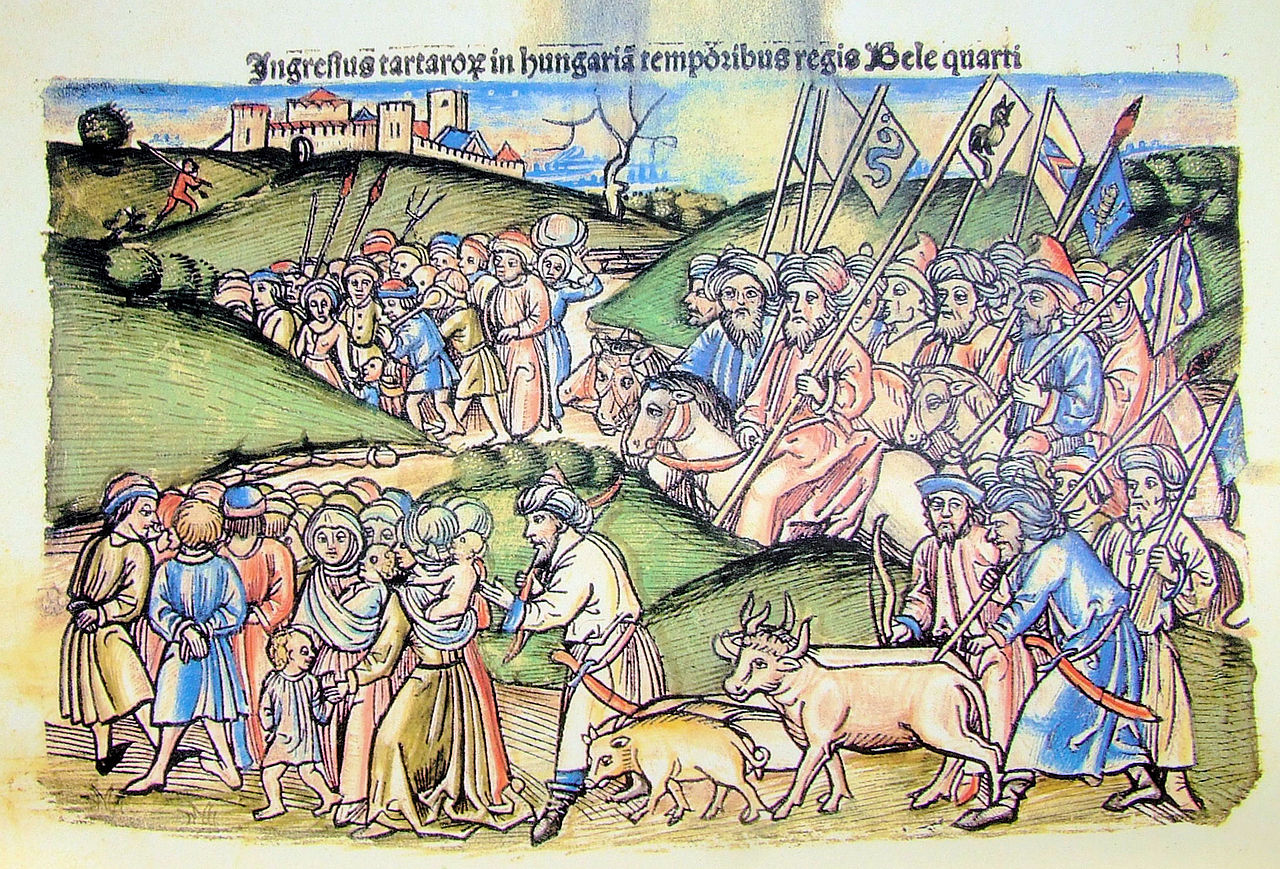 Ingressus tartaroꝝ in hungariā tempōribus regis Bele quarti